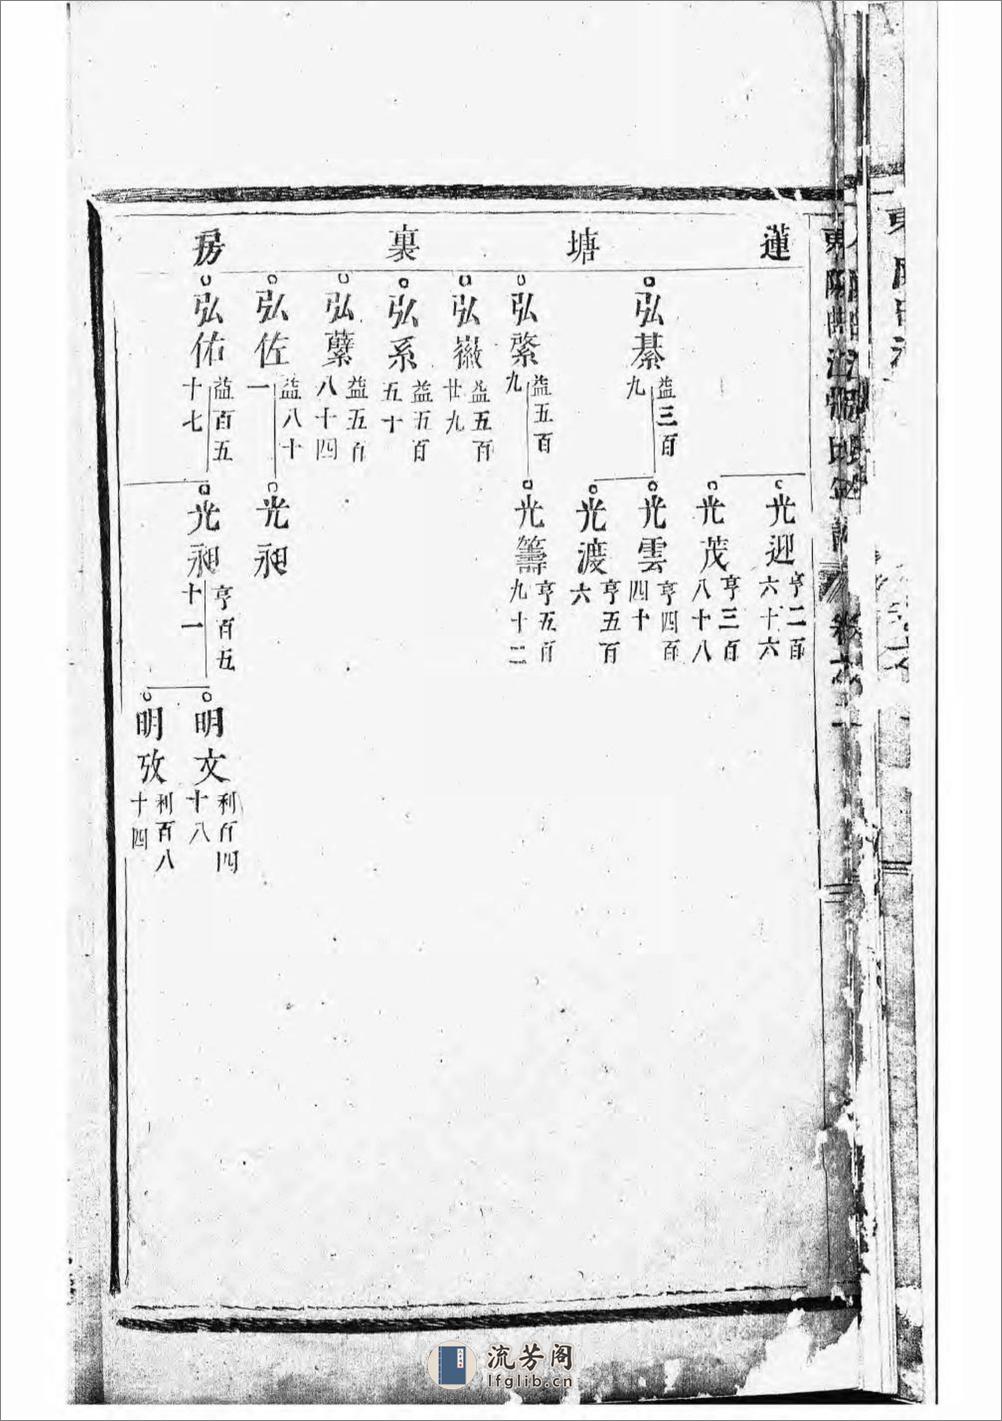 蓮塘裏房
光迎 亨二百六十六
光茂 亨三百八十八
弘綦 益三百九
光雲 亨四百四十
光渡 亨五百六
弘綮 益五百九
光籌 亨五百九十二
弘㣲 益五百廿九
弘系 益五百五十
弘蘩 益五百八十四
弘佐 益八十一
光昶
弘佑 益百五十七
光昶 亨百五十一
明文 利百四十八
明攷 利百八十四
流芳阁
lfglib.cn